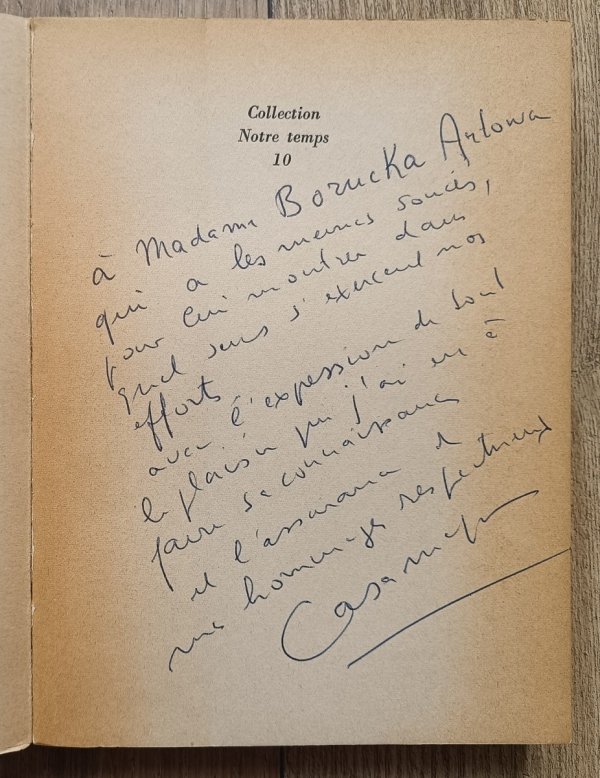 Collection
Notre temps
10
à Madame Borucka Arlowa
qui a les memes soucis,
pour lui montrer dans
quel sens s'exercent nos
efforts
avec l'expression de tout
le plaisir que j'ai eu à
faire sa connaissance
et l'assurance de
mes hommages respectueux